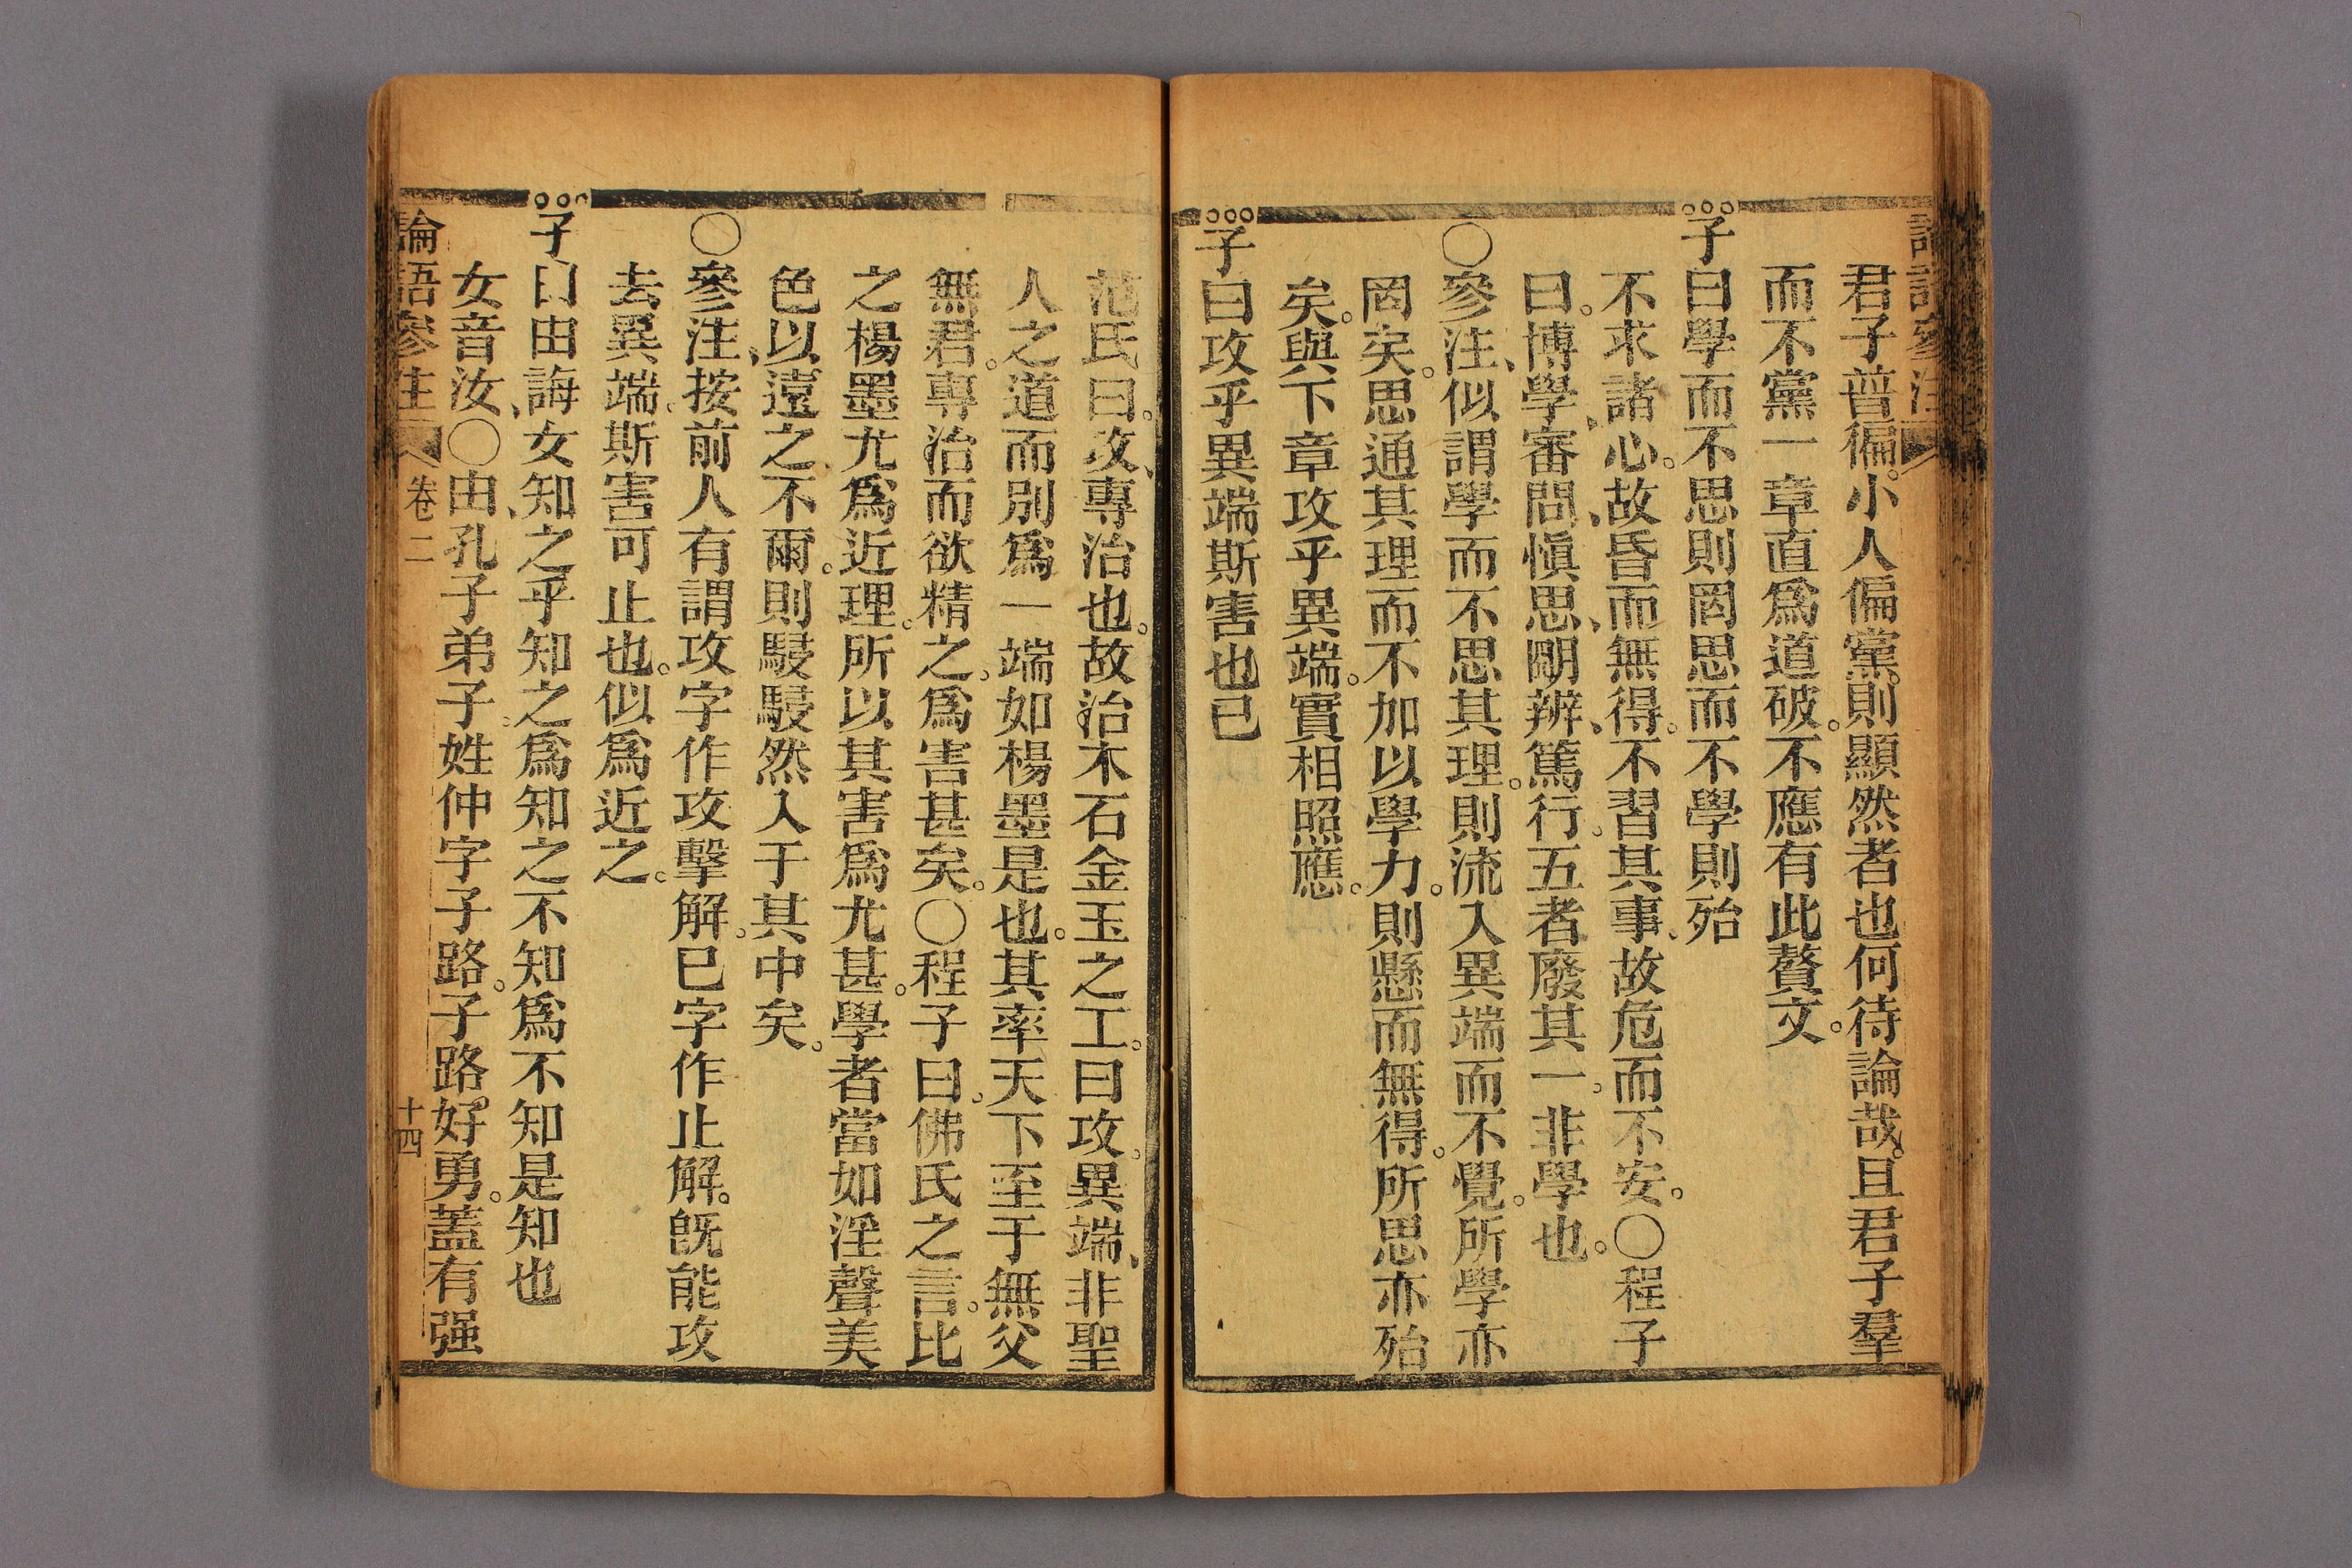 論語參注
君子普徧。小人偏黨。則顯然者也何待論哉。且君子羣
而不黨一章直爲道破。不應有此贅文。
子曰學而不思則罔思而不學則殆
不求諸心。故昏而無得。不習其事、故危而不安。〇程子
曰。博學、審問、愼思、明辨、篤行。五者廢其一。非學也。
〇參注、似謂學而不思其理。則流入異端而不覺。所學亦
罔矣。思通其理而不加以學力。則懸而無得。所思亦殆
矣。與下章攻乎異端。實相照應。
子曰攻乎異端斯害也已
范氏曰。攻、專治也。故治木石金玉之工。曰攻。異端、非聖
人之道而別爲一端如楊墨是也。其率天下至于無父
無君。專治而欲精之。爲害甚矣。〇程子曰。佛氏之言。比
之楊墨尤爲近理。所以其害爲尤甚。學者當如淫聲美
色以遠之、不爾。則駸駸然入于其中矣。
〇參注、按前人有謂攻字作攻擊解。已字作止解。旣能攻
去異端。斯害可止也。似爲近之。
子曰由誨女知之乎知之爲知之不知爲不知是知也
女音汝、〇由、孔子弟子。姓仲字子路。子路。好勇。蓋有强
論語參注 卷二 十四